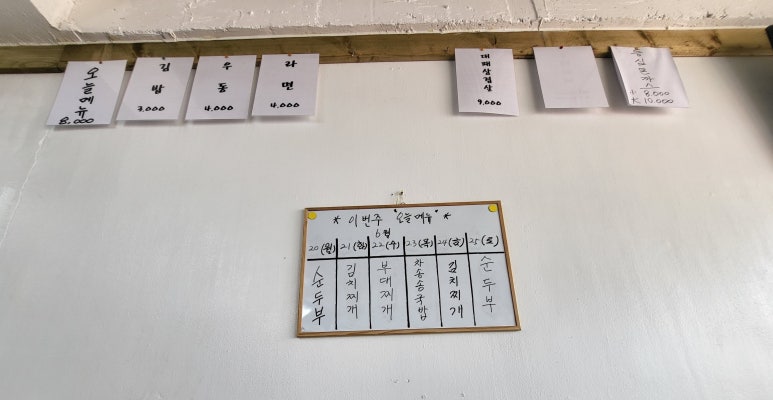 오늘메뉴
8,000
김밥
3,000
우동
4,000
라면
4,000
대패삼겹살
9,000
등심돈까스
小 8,000
大 10,000
* 이번주 "오늘메뉴" *
6월
20(월) 21(화) 22(수) 23(목) 24(금) 25(토)
순두부
김치찌개
부대찌개
차송송국밥
김치찌개
순두부